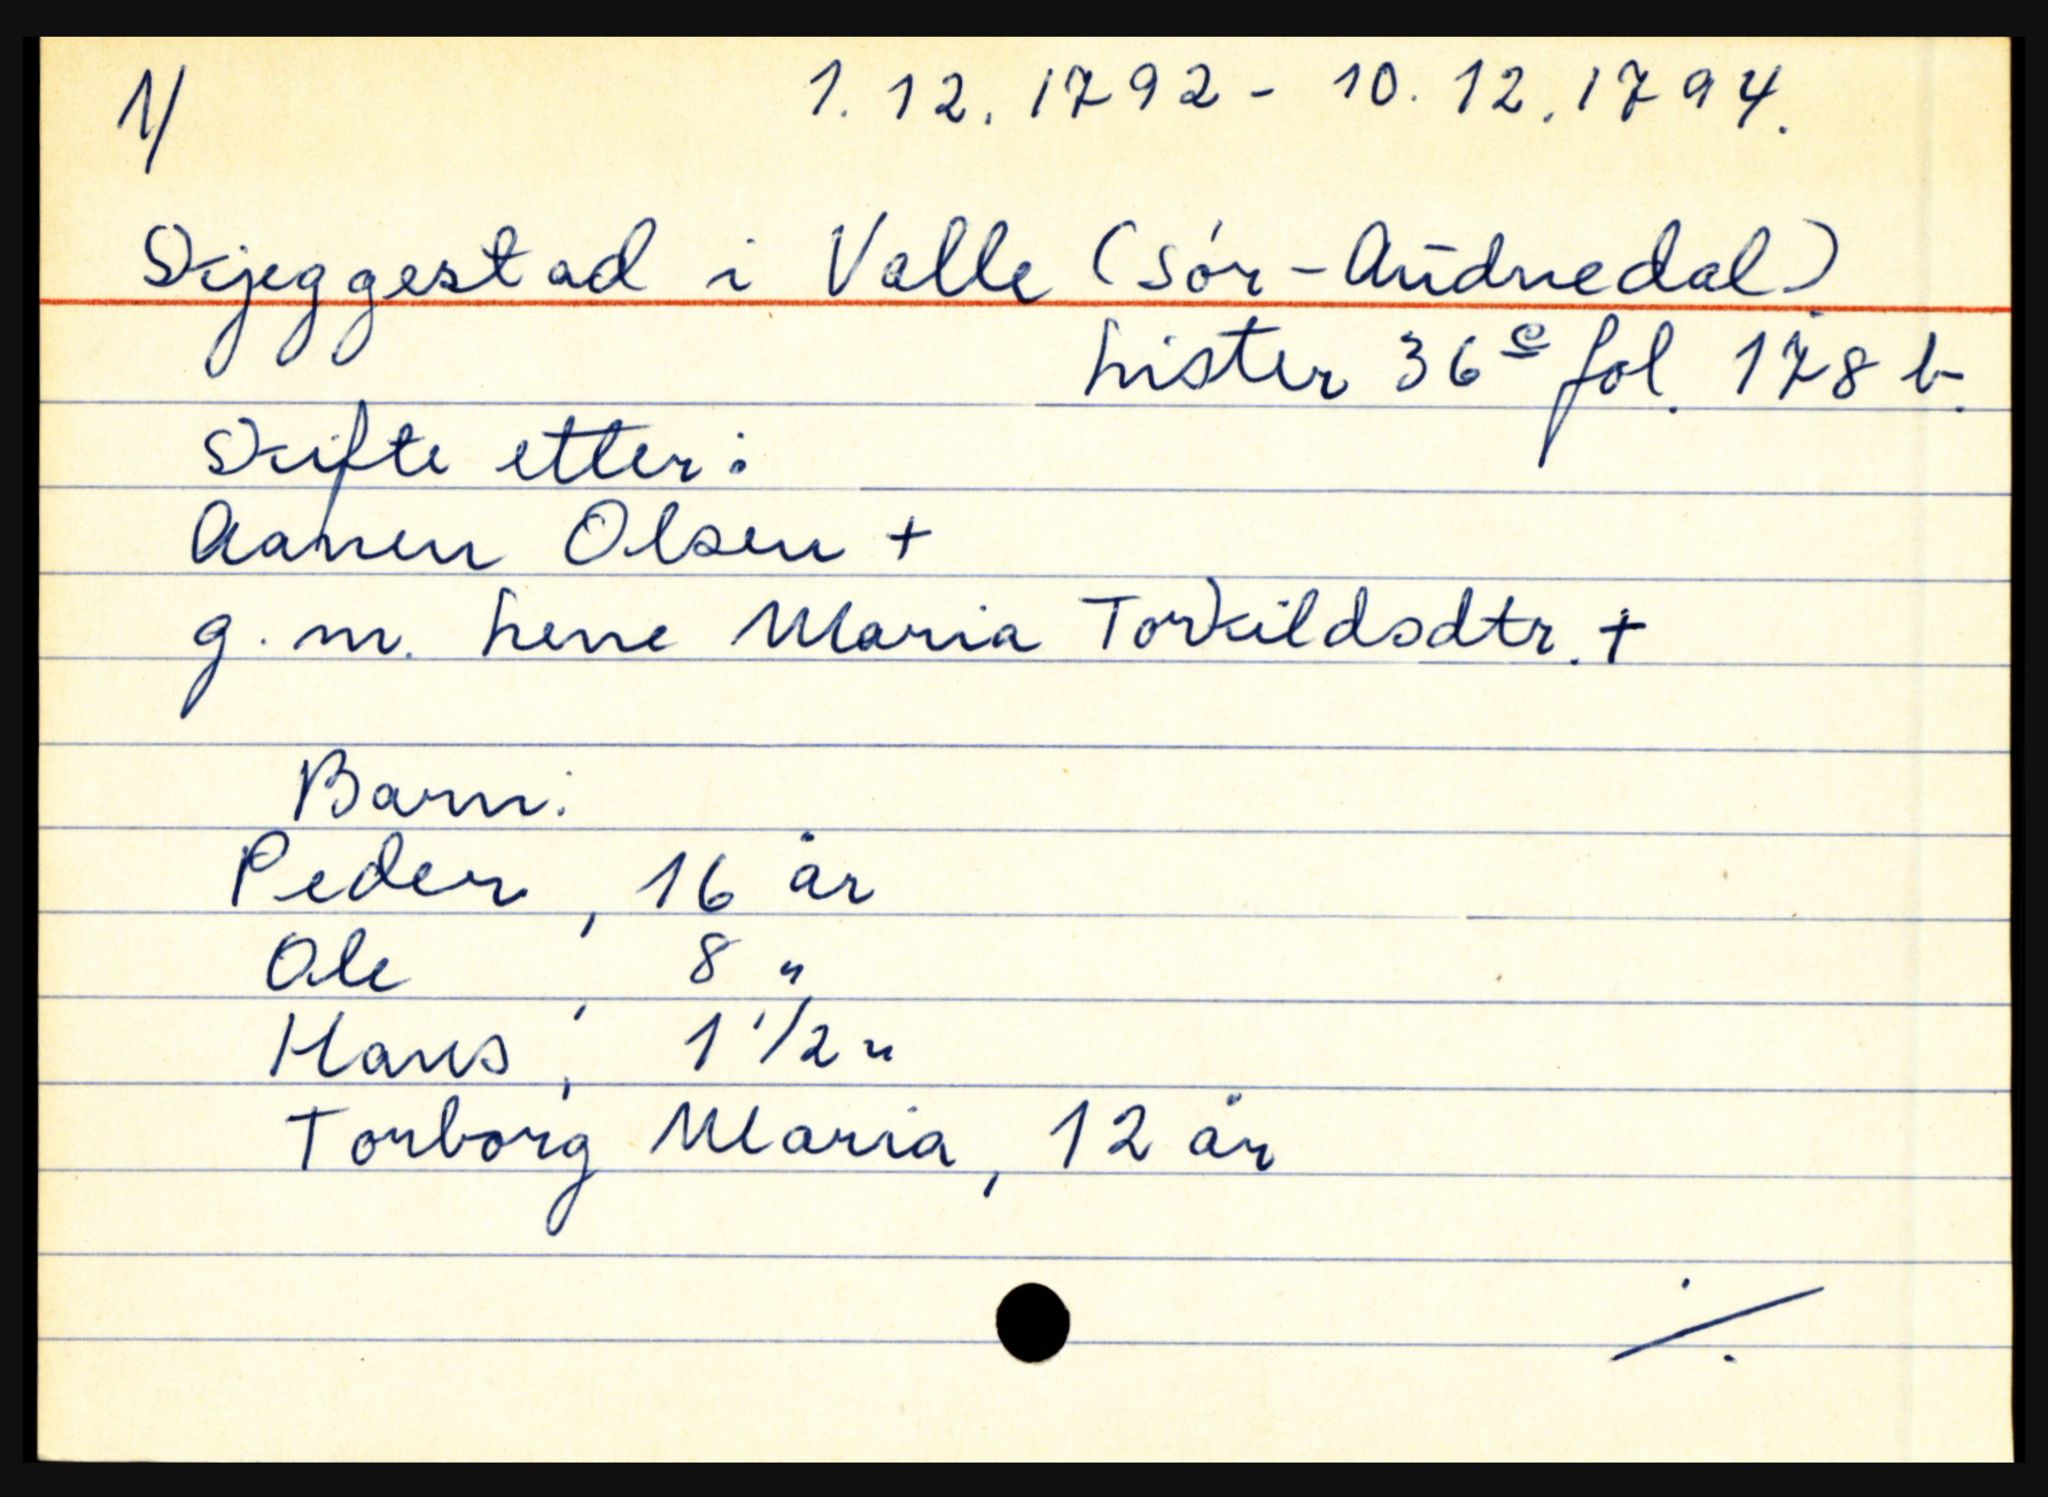 1/ 1.12.1792 - 10.12.1794.
Skjeggestad i Valle (Sór-Aūdnedal)
Lister 36c fol. 178 b.
Skifte etter:
Aanen Olsen +
g. m. Lene Maria Torkildsdtr. +
Barn:
Peder, 16 år
Ole, 8 "
Hans, 1 1/2 "
Torborg Maria, 12 år
./.